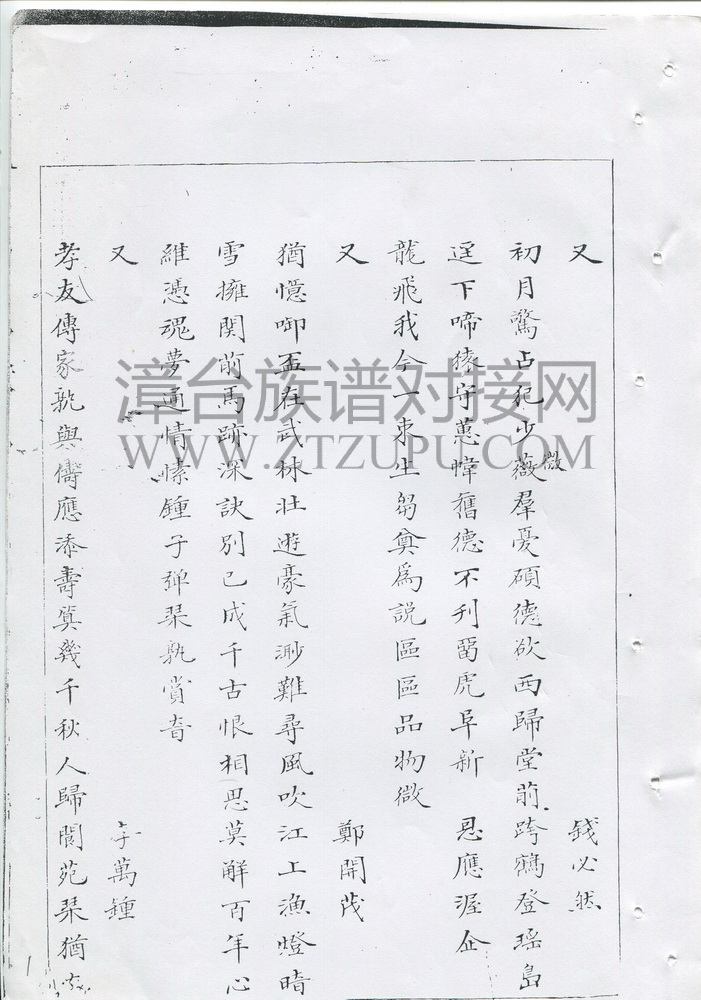 又 錢必然
初月驚占犯少薇羣憂碩德欲西歸堂前跨鶴登瑤島
微
逕下啼猿守蕙幃舊德不刊畱虎阜新恩應渥企
龍飛我今一束生芻奠爲説區區品物微
又 鄭開茂
猶憶啣盃在武林壯遊豪氣渺難尋風吹江上漁燈暗
雪擁関前馬跡深訣別已成千古恨相思莫解百年心
維憑魂夢通情愫鍾子弹琹孰賞音
又 萬鍾
孝友傳家孰與儔應添壽算幾千秋人歸閬苑琹猶
漳台族谱对接网
WWW.ZTZUPU.COM